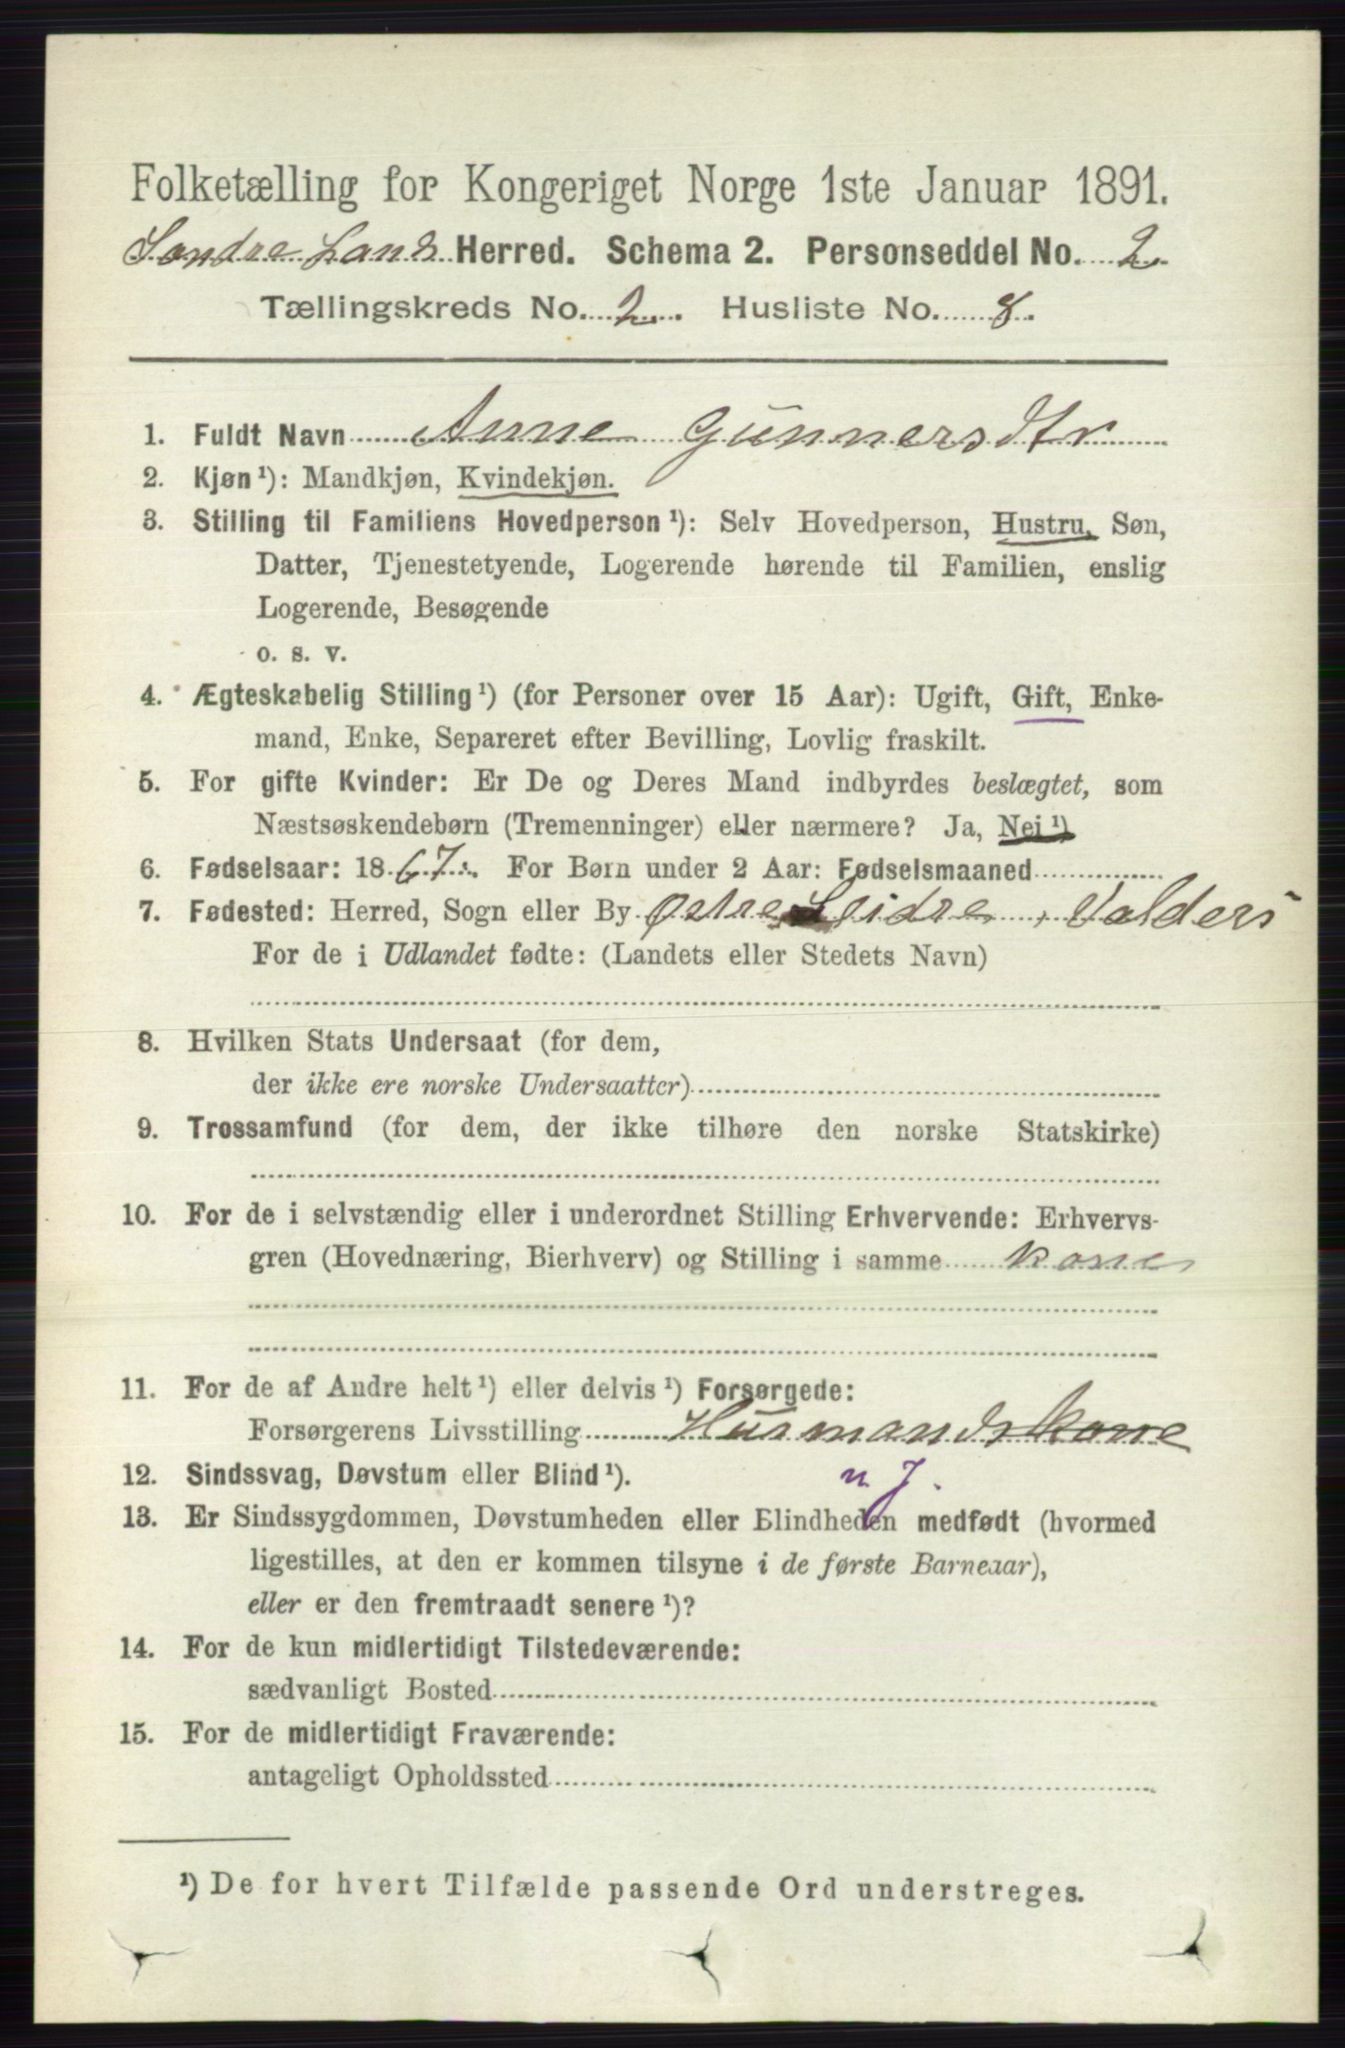 Folketælling for Kongeriget Norge 1ste Januar 1891.
Søndre Land Herred. Schema 2. Personseddel No. 2
Tællingskreds No. 2. Husliste No. 8.
1. Fuldt Navn Anne Gunnersdtr
2. Kjøn ¹): Mandkjøn, Kvindekjøn.
3. Stilling til Familiens Hovedperson ¹): Selv Hovedperson, Hustru, Søn,
Datter, Tjenestetyende, Logerende hørende til Familien, enslig
Logerende, Besøgende
o. s. v.
4. Ægteskabelig Stilling ¹) (for Personer over 15 Aar): Ugift, Gift, Enke-
mand, Enke, Separeret efter Bevilling, Lovlig fraskilt.
5. For gifte Kvinder: Er De og Deres Mand indbyrdes beslægtet, som
Næstsøskendebørn (Tremenninger) eller nærmere? Ja, Nei ¹)
6. Fødselsaar: 1867. For Børn under 2 Aar: Fødselsmaaned
7. Fødested: Herred, Sogn eller By Østre Slidre, Valders
For de i Udlandet fødte: (Landets eller Stedets Navn)
8. Hvilken Stats Undersaat (for dem,
der ikke ere norske Undersaatter)
9. Trossamfund (for dem, der ikke tilhøre den norske Statskirke)
10. For de i selvstændig eller i underordnet Stilling Erhvervende: Erhvervs-
gren (Hovednæring, Bierhverv) og Stilling i samme kone
11. For de af Andre helt ¹) eller delvis ¹) Forsørgede:
Forsørgerens Livsstilling Husmandskone
n. J.
12. Sindssvag, Døvstum eller Blind ¹).
13. Er Sindssygdommen, Døvstumheden eller Blindheden medfødt (hvormed
ligestilles, at den er kommen tilsyne i de første Barneaar),
eller er den fremtraadt senere ¹)?
14. For de kun midlertidigt Tilstedeværende:
sædvanligt Bosted
15. For de midlertidigt Fraværende:
antageligt Opholdssted
¹) De for hvert Tilfælde passende Ord understreges.